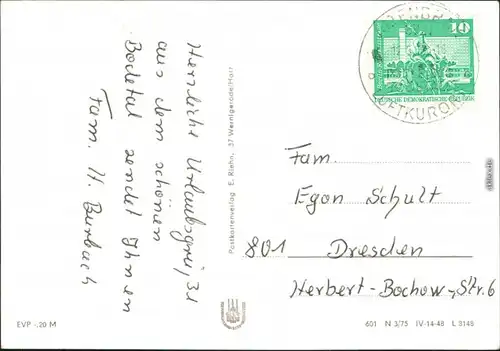 Herrliche Urlaubsgrüße
aus dem schönen
Bodetal sendet Ihnen
Fam. H. Burbach
Postkartenverlag E. Riehn, 37 Wernigerode/Harz
10
DEUTSCHE DEMOKRATISCHE REPUBLIK
LUFTKURORT
Fam.
Egon Schult
801 Dresden
Herbert-Bochow-Str. 6
EVP -,20 M
601 N 3/75 IV-14-48 L 8148